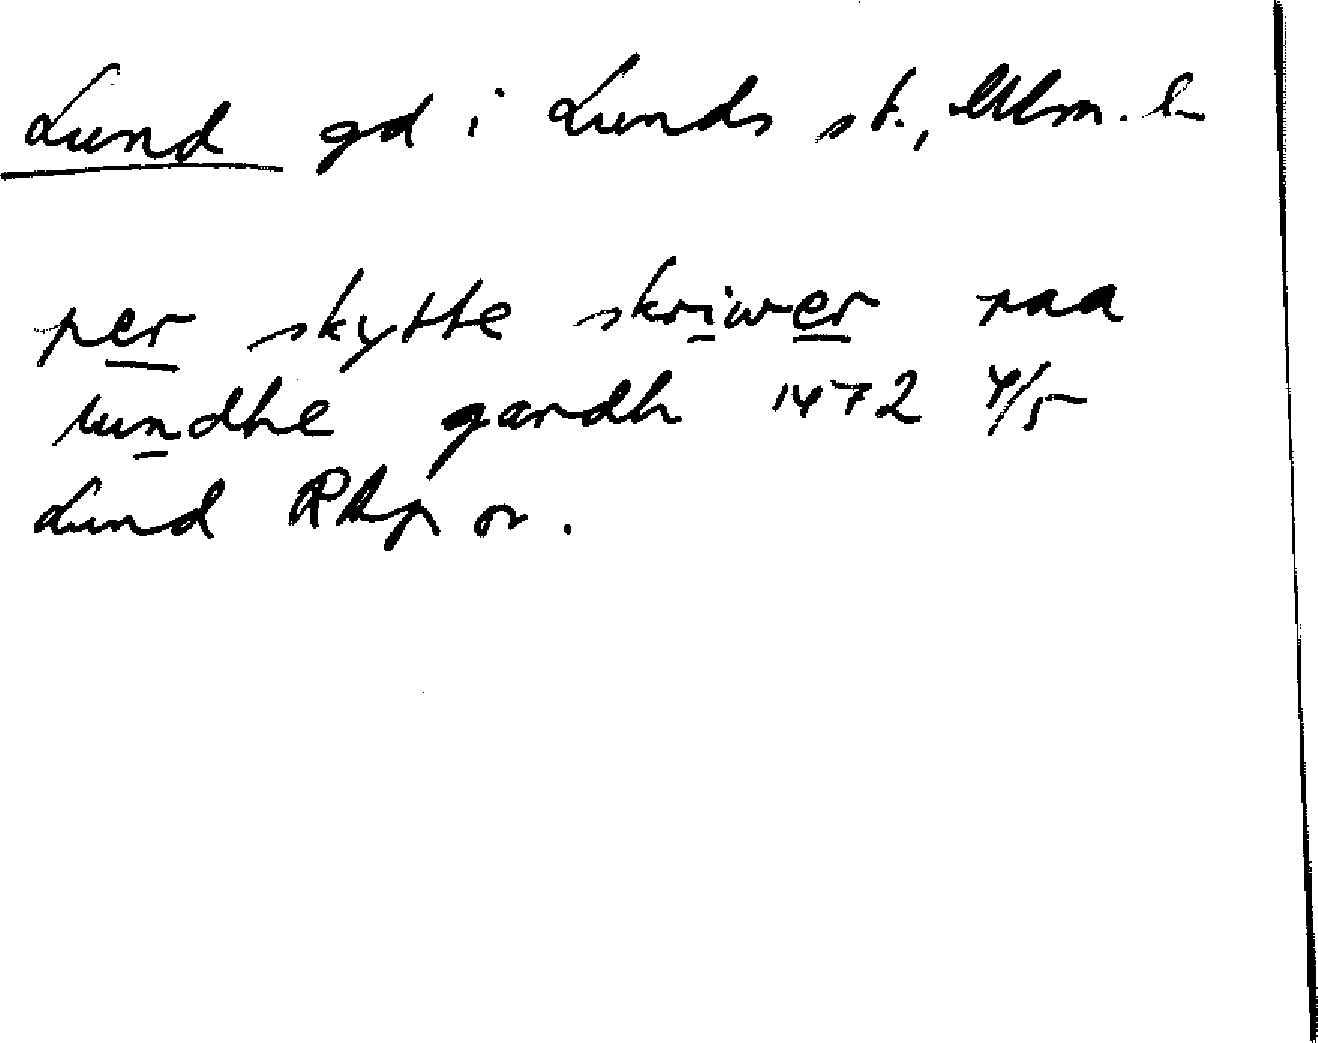 Lund gd i Lunds st., Mlm. l.
per skytte skriwer paa
lundhe gardh 1472 4/5
Lund RAp or.